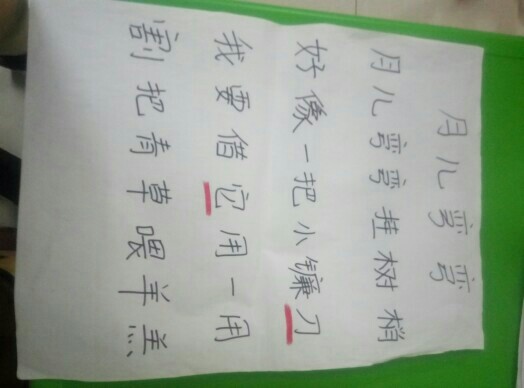 月儿弯弯
月儿弯弯挂树梢
好像一把小镰刀
我要借它用一用
割把青草喂羊羔